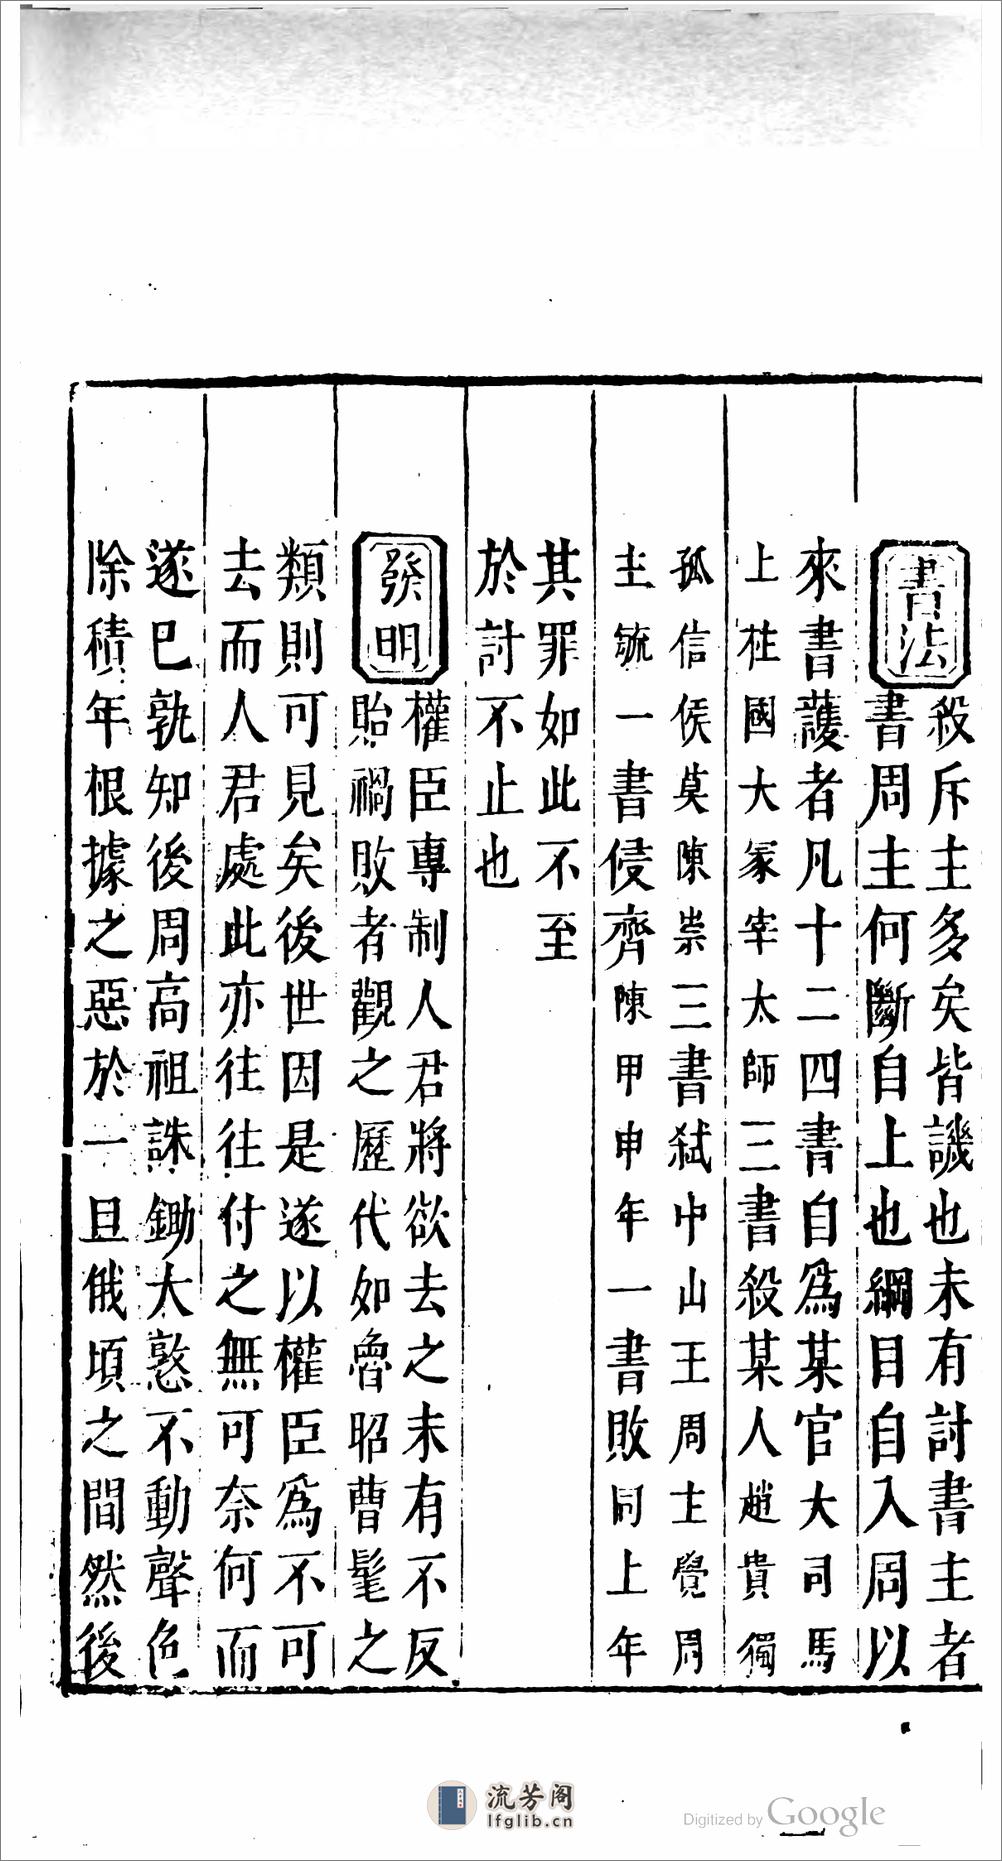 書法
殺斥主多矣皆譏也未有討書主者
書周主何斷自上也綱目自入周以
來書護者凡十二四書自爲某官大司馬
上柱國大冢宰太師三書殺某人趙貴獨
孤信侯莫陳崇三書弑中山王周主覺周
主毓一書侵齊陳甲申年一書敗同上年
其罪如此不至
於討不止也
發明
權臣專制人君將欲去之未有不反
貽禍敗者觀之歷代如魯昭曹髦之
類則可見矣後世因是遂以權臣爲不可
去而人君處此亦往往付之無可奈何而
遂巳孰知後周高祖誅鋤大憝不動聲色
除積年根據之惡於一旦俄頃之間然後
流芳阁
lfglib.cn
Digitized by Google